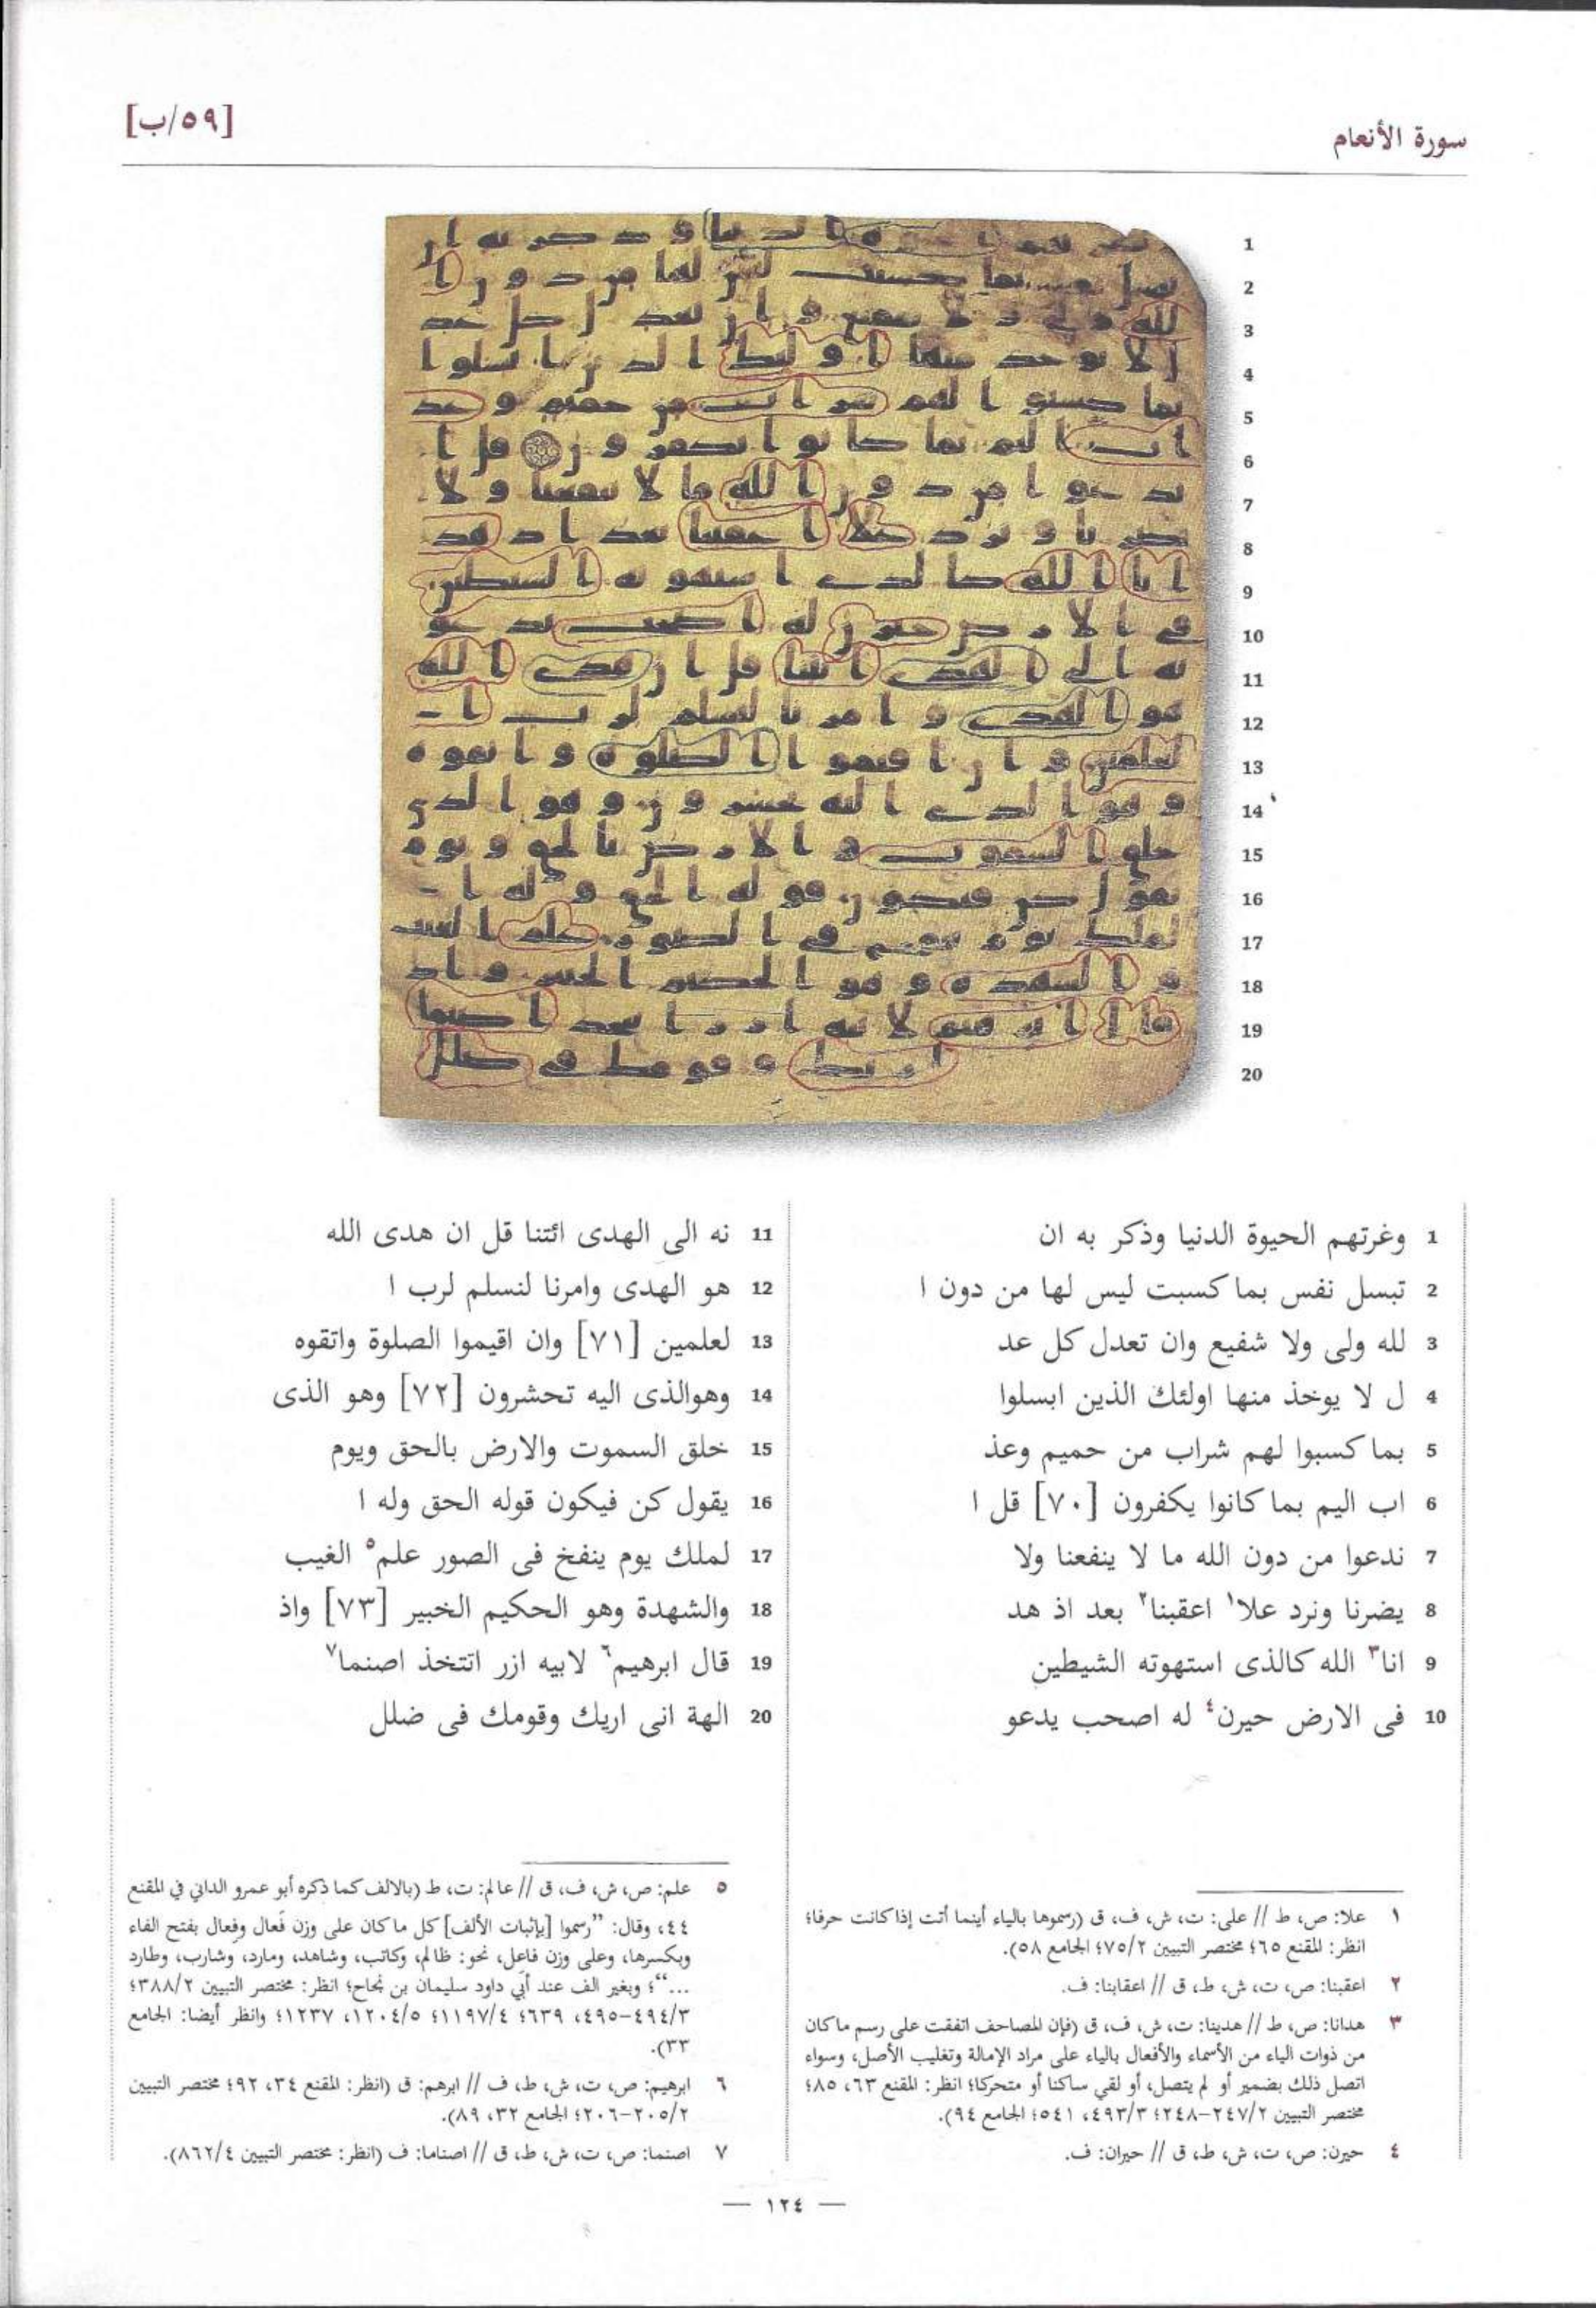 سورة الأنعام
[٥٩/ب]
1 وغرتهم الحيوة الدنيا وذكر به ان
2 تبسل نفس بما كسبت ليس لها من دون ا
3 لله ولى ولا شفيع وان تعدل كل عد
4 ل لا يوخذ منها اولئك الذين ابسلوا
5 بما كسبوا لهم شراب من حميم وعذ
6 اب اليم بما كانوا يكفرون [٧٠] قل ا
7 ندعوا من دون الله ما لا ينفعنا ولا
8 يضرنا ونرد علا١ اعقبنا٢ بعد اذ هد
9 انا٣ الله كالذى استهوته الشيطين
10 فى الارض حيرن٤ له اصحب يدعو
11 نه الى الهدى ائتنا قل ان هدى الله
12 هو الهدى وامرنا لنسلم لرب ا
13 لعلمين [٧١] وان اقيموا الصلوة واتقوه
14 وهوالذى اليه تحشرون [٧٢] وهو الذى
15 خلق السموت والارض بالحق ويوم
16 يقول كن فيكون قوله الحق وله ا
17 لملك يوم ينفخ فى الصور علم٥ الغيب
18 والشهدة وهو الحكيم الخبير [٧٣] واذ
19 قال ابرهيم٦ لابيه ازر اتتخذ اصنما٧
20 الهة انى اريك وقومك فى ضلل
١ علا: ص، ط // على: ت، ش، ف، ق (رسموها بالياء أينما أتت إذا كانت حرفا؛
انظر: المقنع ٦٥؛ مختصر التبيين ٧٥/٢؛ الجامع ٥٨).
٢ اعقبنا: ص، ت، ش، ط، ق // اعقابنا: ف.
٣ هدانا: ص، ط // هدينا: ت، ش، ف، ق (فإن المصاحف اتفقت على رسم ما كان
من ذوات الياء من الأسماء والأفعال بالياء على مراد الإمالة وتغليب الأصل، وسواء
اتصل ذلك بضمير أو لم يتصل، أو لقي ساكنا أو متحركا؛ انظر: المقنع ٦٣، ٨٥؛
مختصر التبيين ٢٤٧/٢-٢٤٨؛ ٤٩٣/٣، ٥٤١؛ الجامع ٩٤).
٤ حيرن: ص، ت، ش، ط، ق // حيران: ف.
٥ علم: ص، ش، ف، ق // عالم: ت، ط (بالالف كما ذكره أبو عمرو الداني في المقنع
٤٤، وقال: ”رسموا [بإثبات الألف] كل ما كان على وزن فَعال وفِعال بفتح الفاء
وبكسرها، وعلى وزن فاعل، نحو: ظالم، وكاتب، وشاهد، ومارد، وشارب، وطارد
...“؛ وبغير الف عند أبي داود سليمان بن نجاح؛ انظر: مختصر التبيين ٣٨٨/٢؛
٤٩٤/٣-٤٩٥، ٦٣٩؛ ١١٩٧/٤؛ ١٢٠٤/٥، ١٢٣٧؛ وانظر أيضا: الجامع
٣٣).
٦ ابرهيم: ص، ت، ش، ط، ف // ابرهم: ق (انظر: المقنع ٣٤، ٩٢؛ مختصر التبيين
٢٠٥/٢-٢٠٦؛ الجامع ٣٢، ٨٩).
٧ اصنما: ص، ت، ش، ط، ق // اصناما: ف (انظر: مختصر التبيين ٨٦٢/٤).
— ١٢٤ —